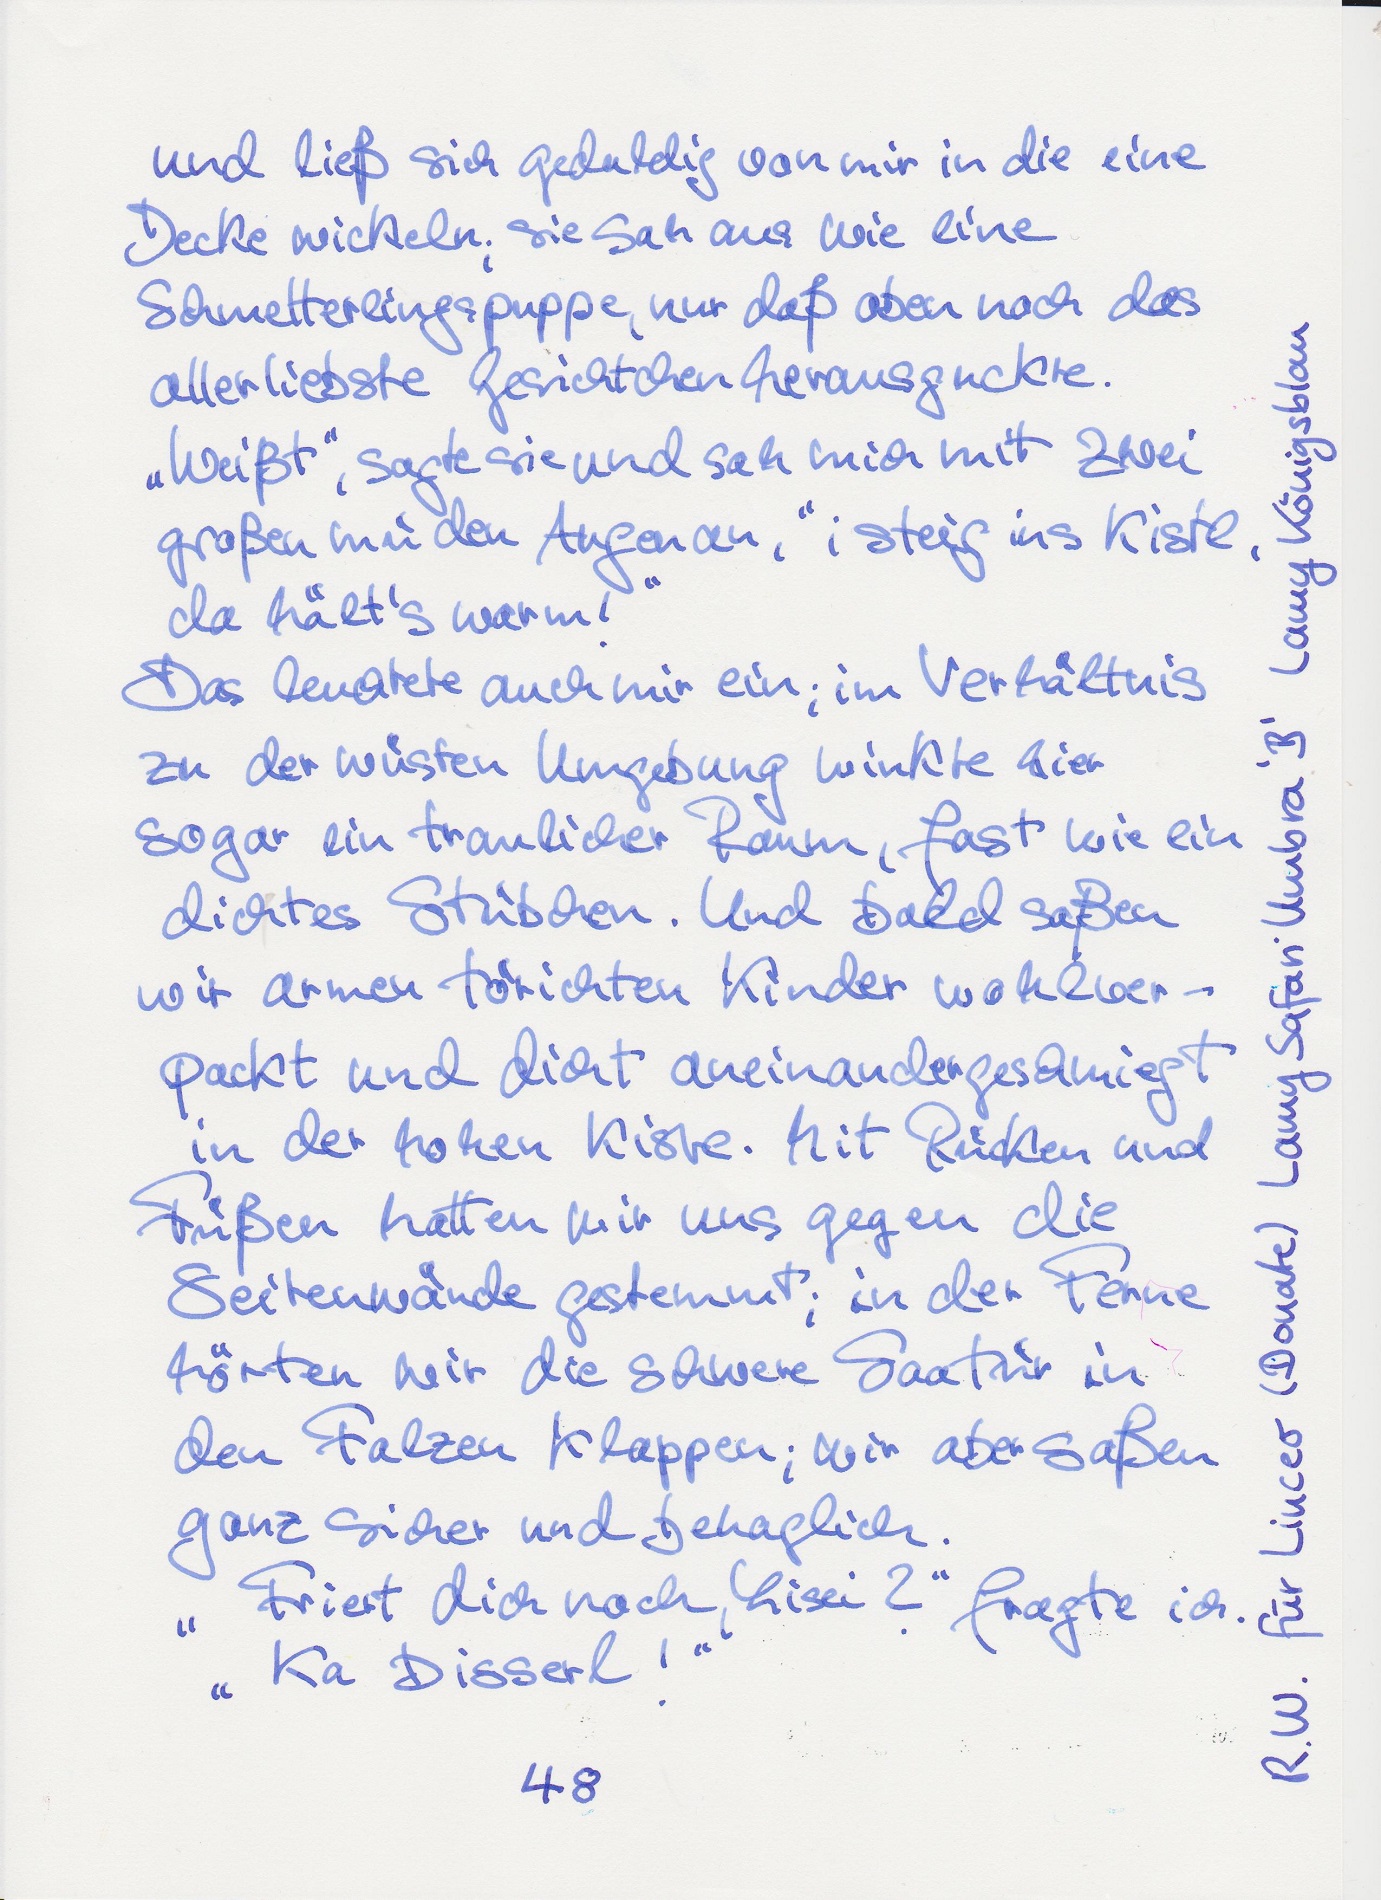 und ließ sich geduldig von mir in die eine
Decke wickeln; sie sah aus wie eine
Schmetterlingspuppe, nur daß oben noch das
allerliebste Gesichtchen herausguckte.
„Weißt“, sagte sie und sah mich mit zwei
großen müden Augen an, “i steig ins Kistl,
da hält's warm!“
Das leuchtete auch mir ein; im Verhältnis
zu der wüsten Umgebung winkte hier
sogar ein traulicher Raum, fast wie ein
dichtes Stübchen. Und bald saßen
wir armen törichten Kinder wohlver-
packt und dicht aneinandergeschmiegt
in der hohen Kiste. Mit Rücken und
Füßen hatten wir uns gegen die
Seitenwände gestemmt; in der Ferne
hörten wir die schwere Saaltür in
den Falzen klappen; wir aber saßen
ganz sicher und behaglich.
„Friert dich noch, Lisei?“ fragte ich.
„Ka Bisserl!“
48
R.W. für Linceo (Donate) Lamy Safari Umbra 'B' Lamy Königsblau